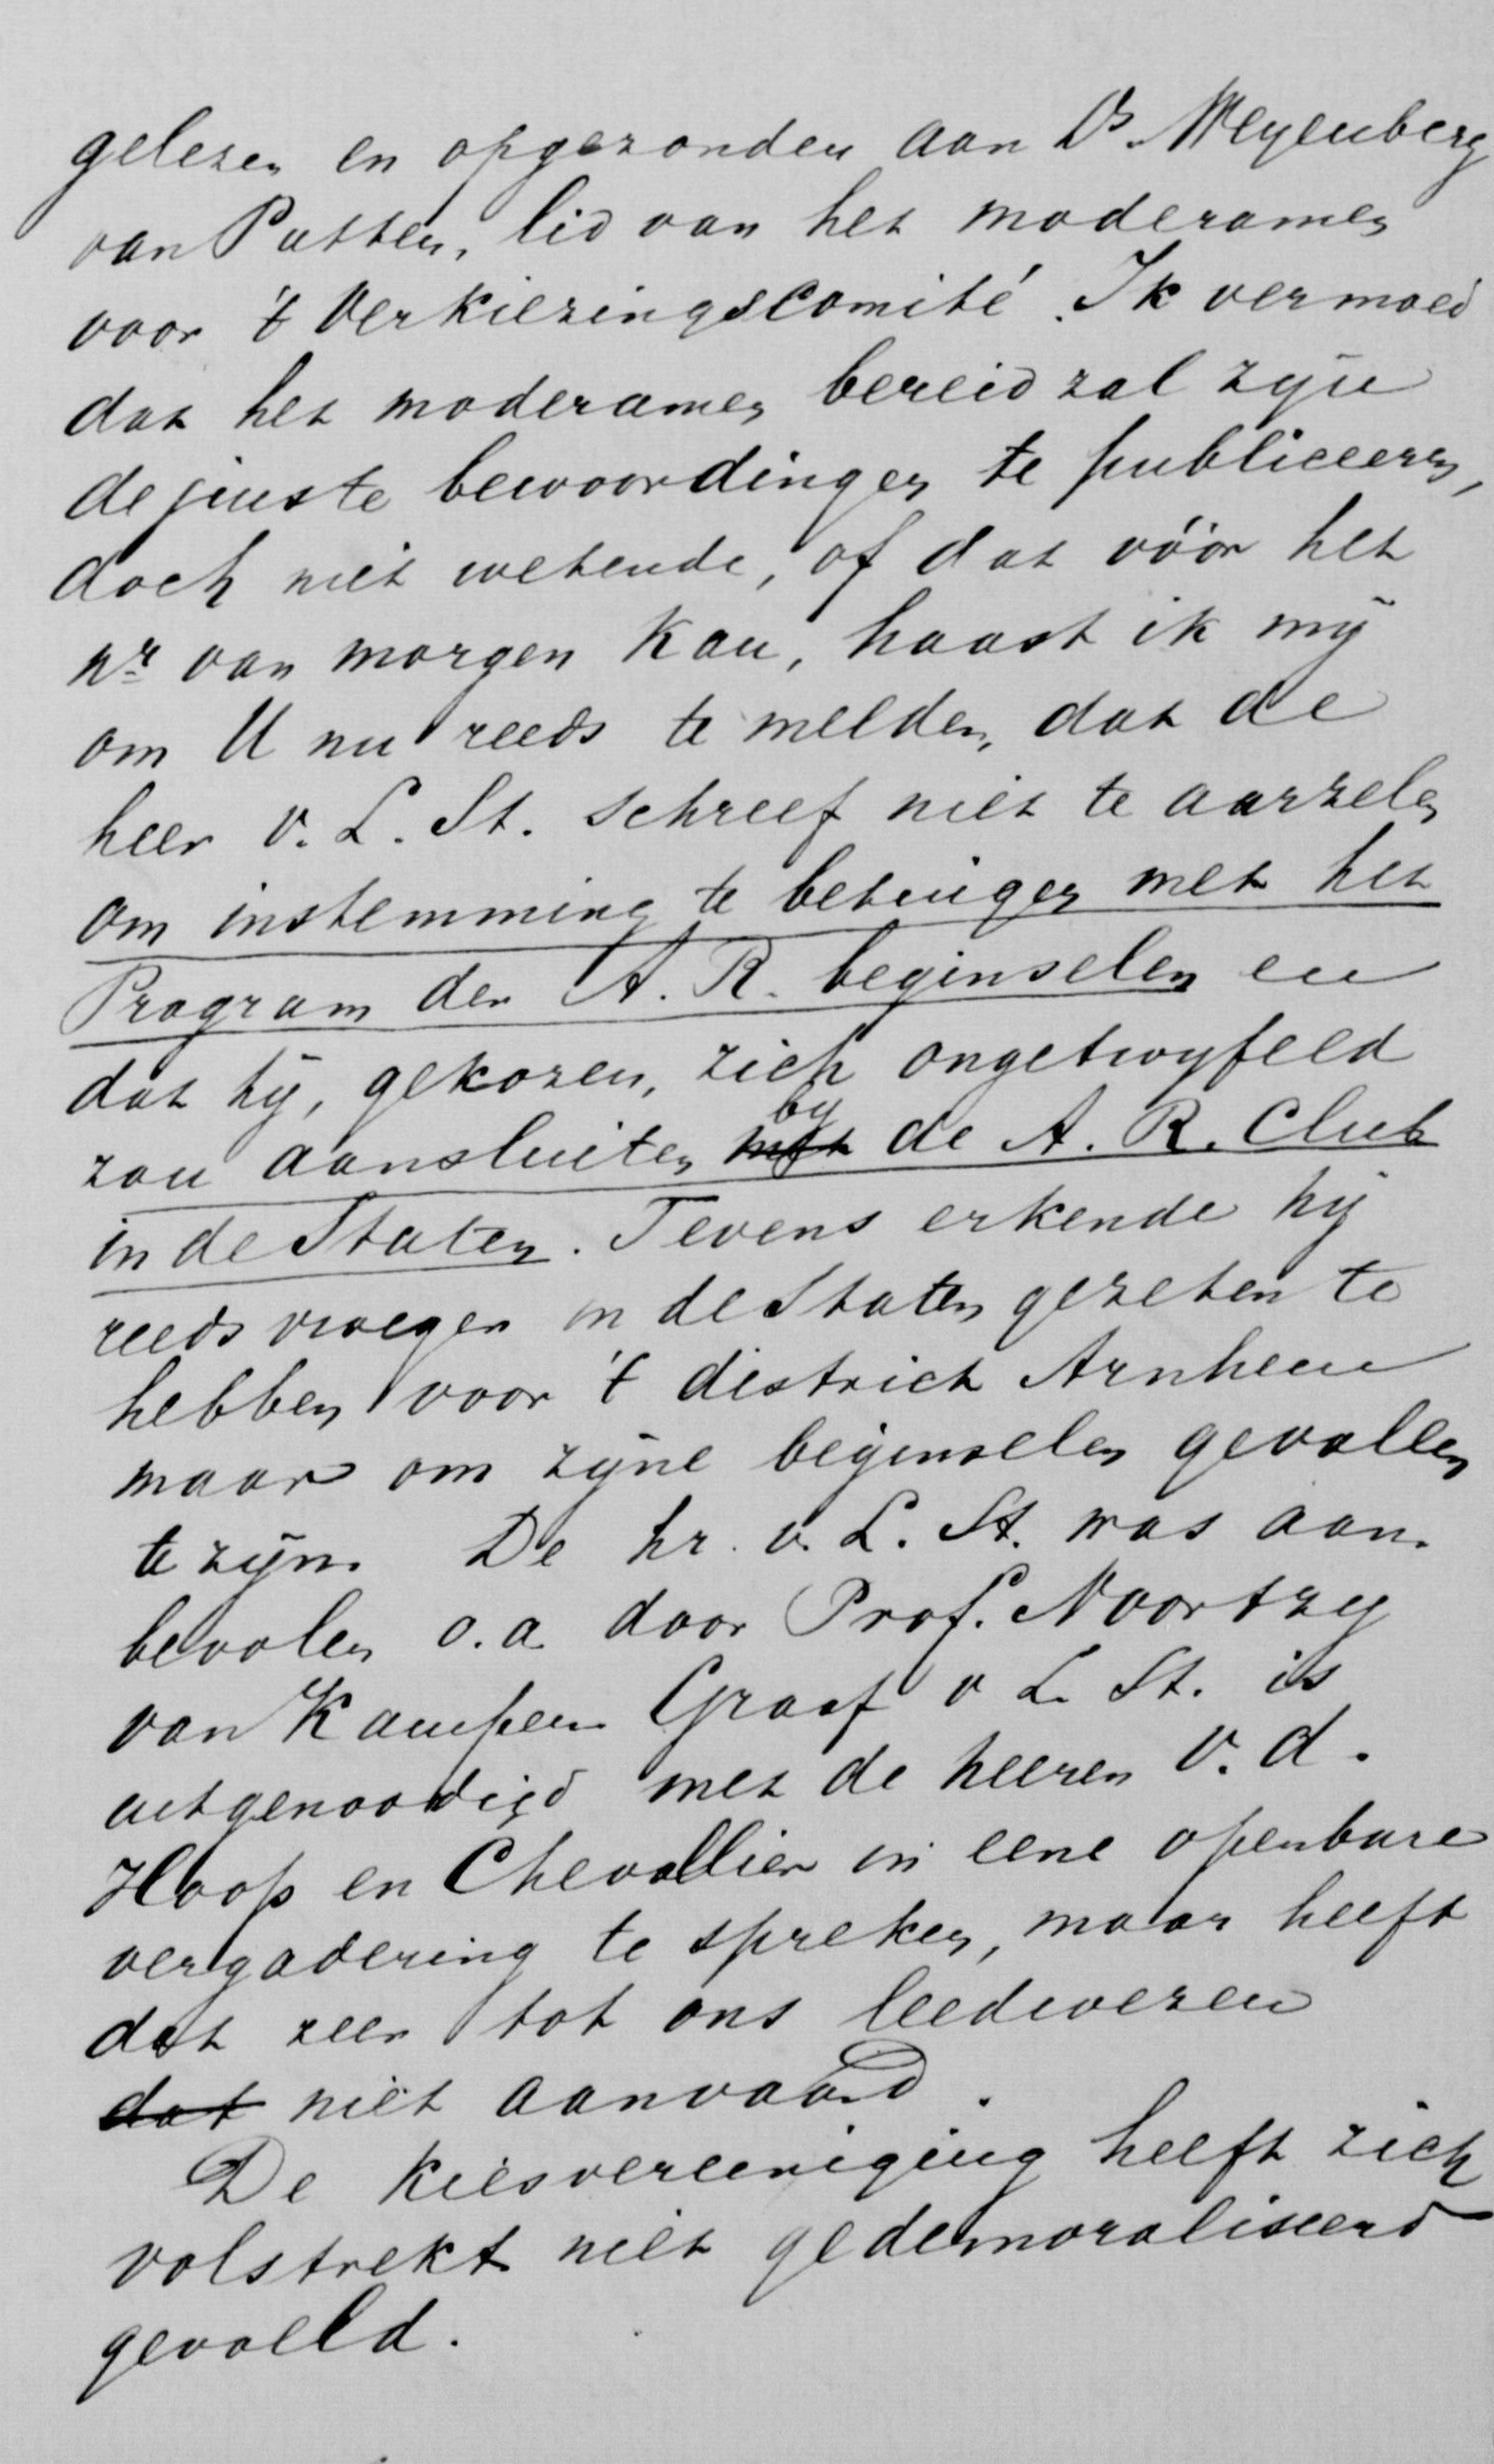 gelezen en opgezonden aan Ds. Meyenberg
van Putten, lid van het moderamen
voor 't Verkiezingscomité. Ik vermoed
dat het moderamen bereid zal zyn
de juiste bewoordingen te publiceeren,
doch niet wetende, of dat vóór het
nr van morgen kan, haast ik mij
om U nu reeds te melden, dat de
heer v. L. St. schreef niet te aarzelen
om instemming te betuigen met het
Program der A. R. beginselen en
dat hij, gekozen, zich ongetwyfeld
zou aansluiten met by de A. R. Club
in de Staten. Tevens erkende hij
reeds vroeger in de Staten gezeten te
hebben voor 't district Arnhem
maar om zijne beginselen gevallen
te zijn. De hr. v. L. St. was aan-
bevolen o.a. door Prof. Noortzy
van Kampen. Graaf v L. St. is
uitgenoodigd met de heeren v. d.
Hoop en Chevallier in eene openbare
vergadering te spreken, maar heeft
dat zeer tot ons leedwezen
dat niet aanvaard.
De kiesvereeniging heeft zich
volstrekt niet gedemoraliseerd
gevoeld.